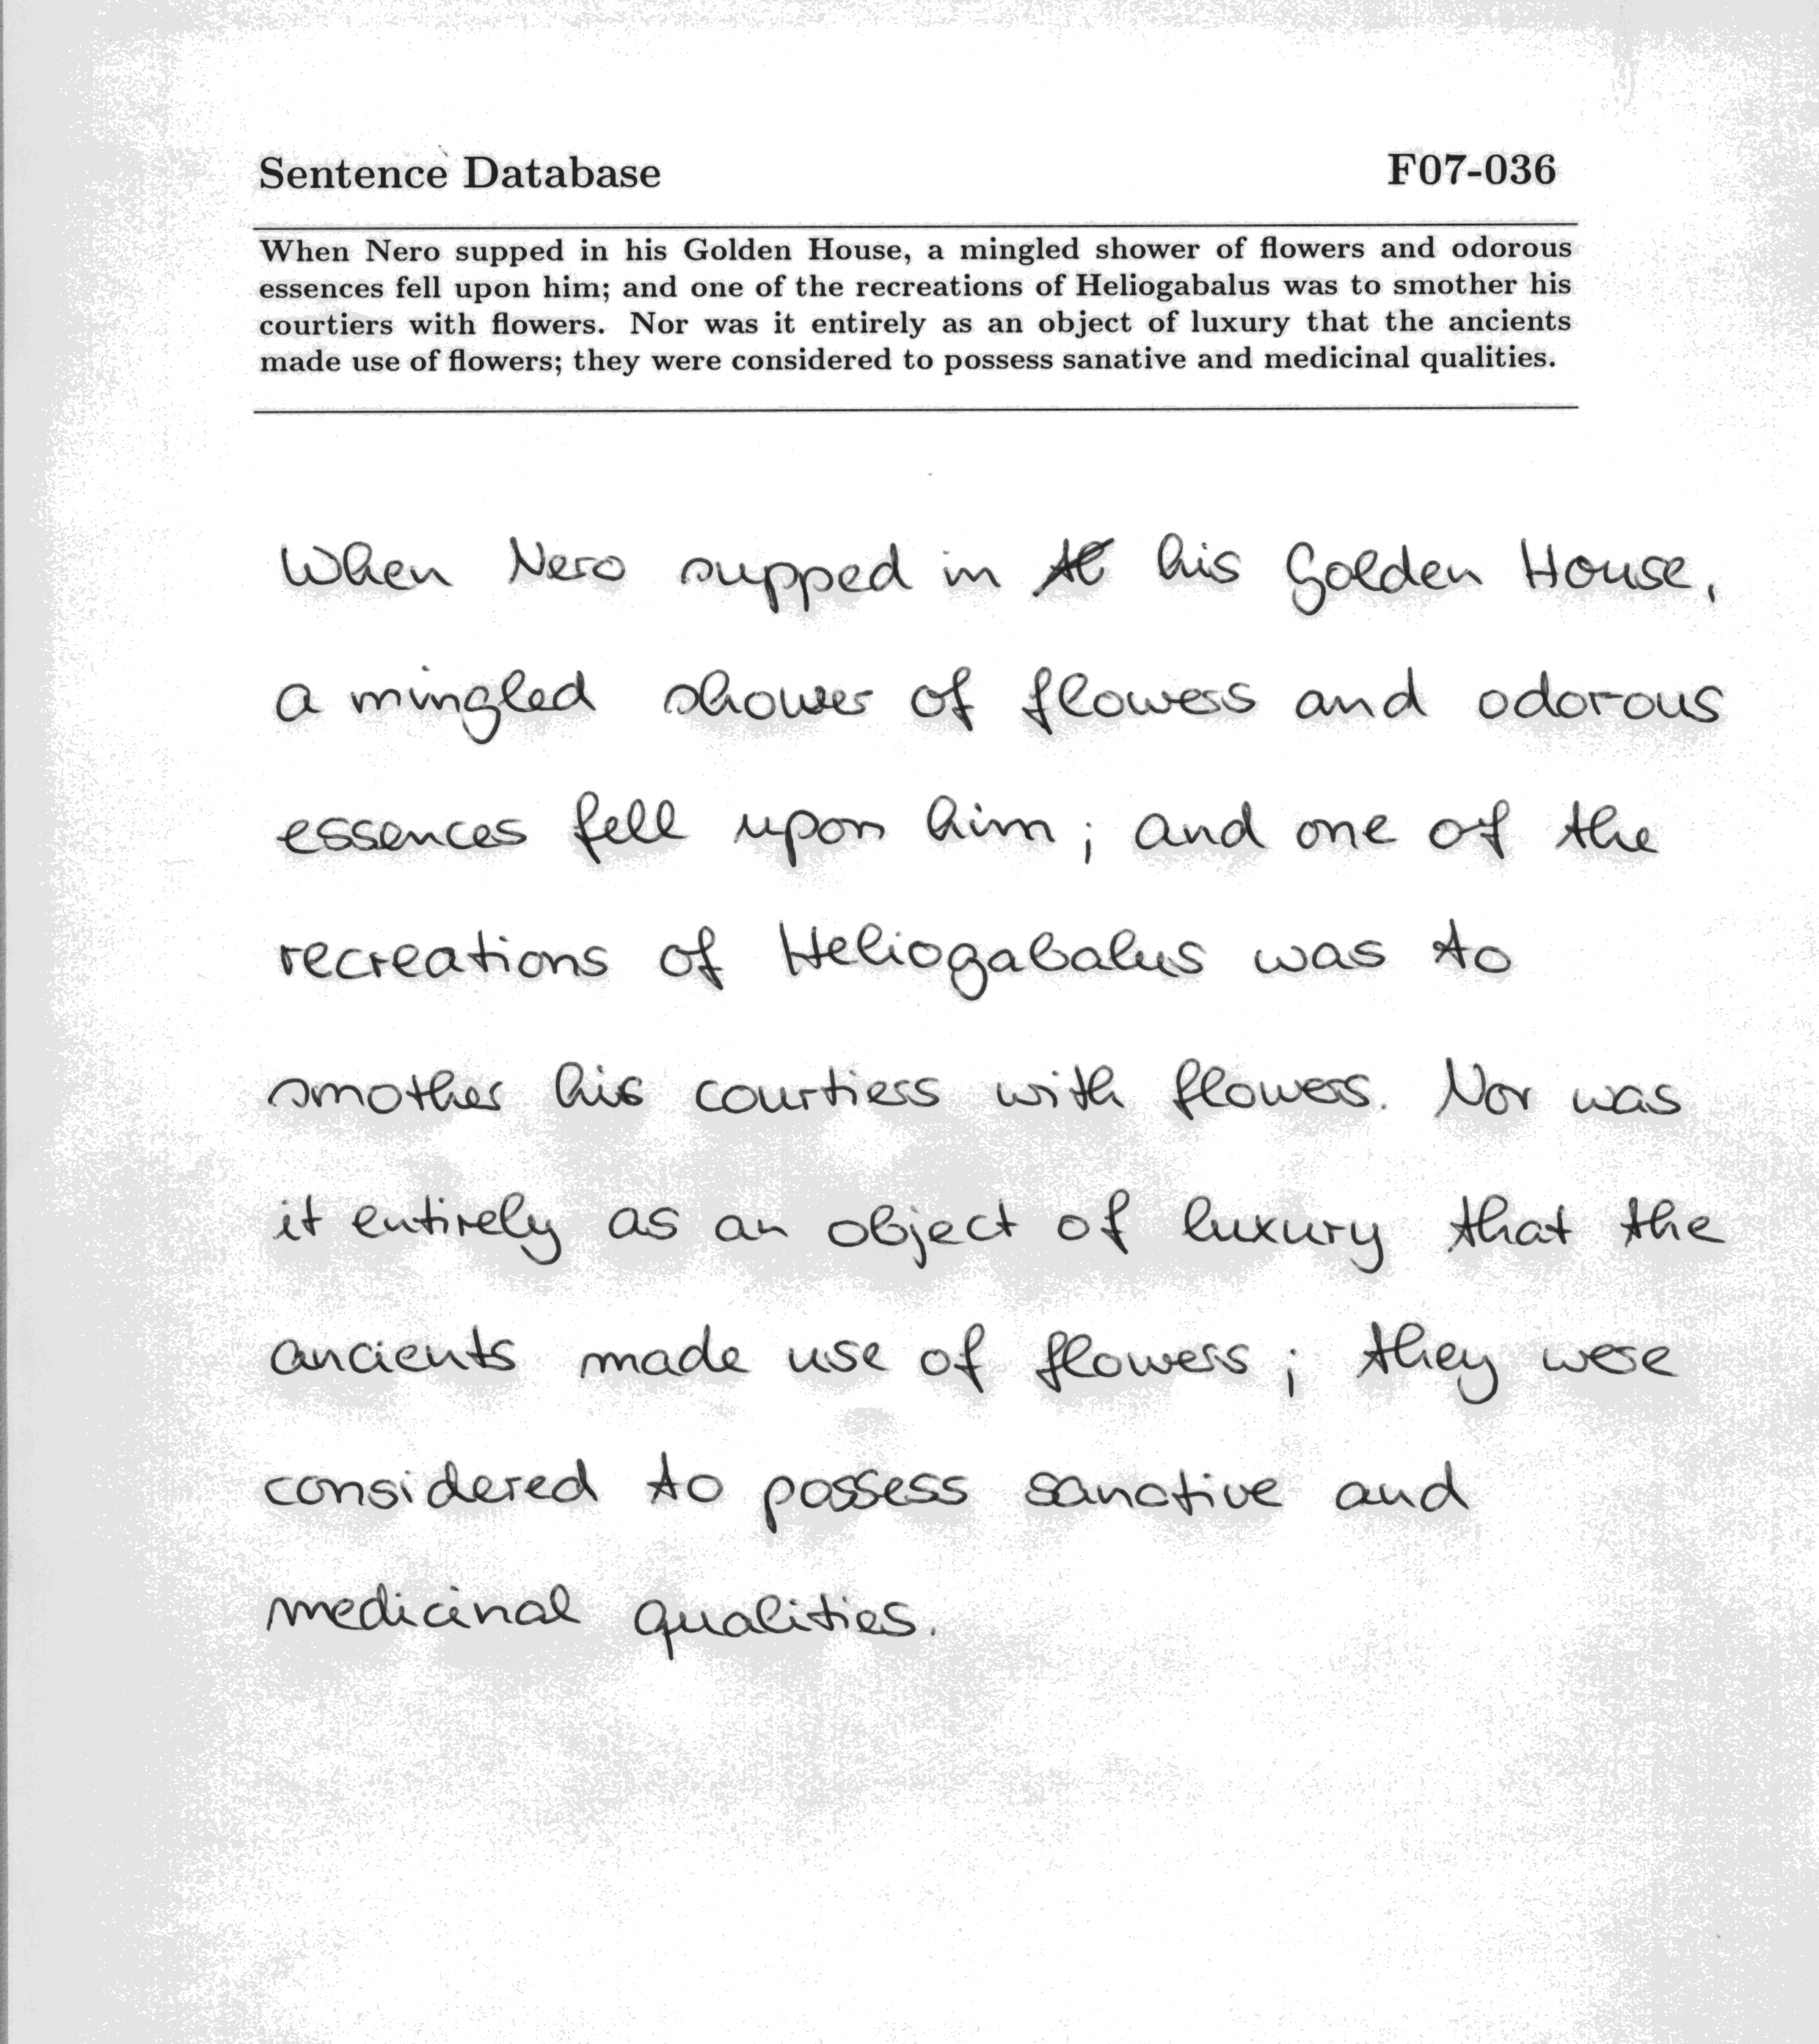 Sentence Database F07-036
When Nero supped in his Golden House, a mingled shower of flowers and odorous
essences fell upon him; and one of the recreations of Heliogabalus was to smother his
courtiers with flowers. Nor was it entirely as an object of luxury that the ancients
made use of flowers; they were considered to possess sanative and medicinal qualities.
When Nero supped in his Golden House,
a mingled shower of flowers and odorous
essences fell upon him; and one of the
recreations of Heliogabalus was to
smother his courtiers with flowers. Nor was
it entirely as an object of luxury that the
ancients made use of flowers; they were
considered to possess sanative and
medicinal qualities.